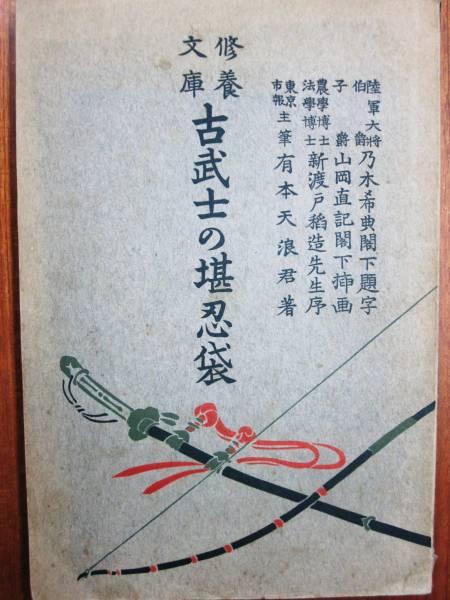 陸軍大将伯爵乃木希典閣下題字
子爵山岡直記閣下挿画
農學博士法學博士新渡戸稻造先生序
東京市報主筆有本天浪君著
修養文庫
古武士の堪忍袋